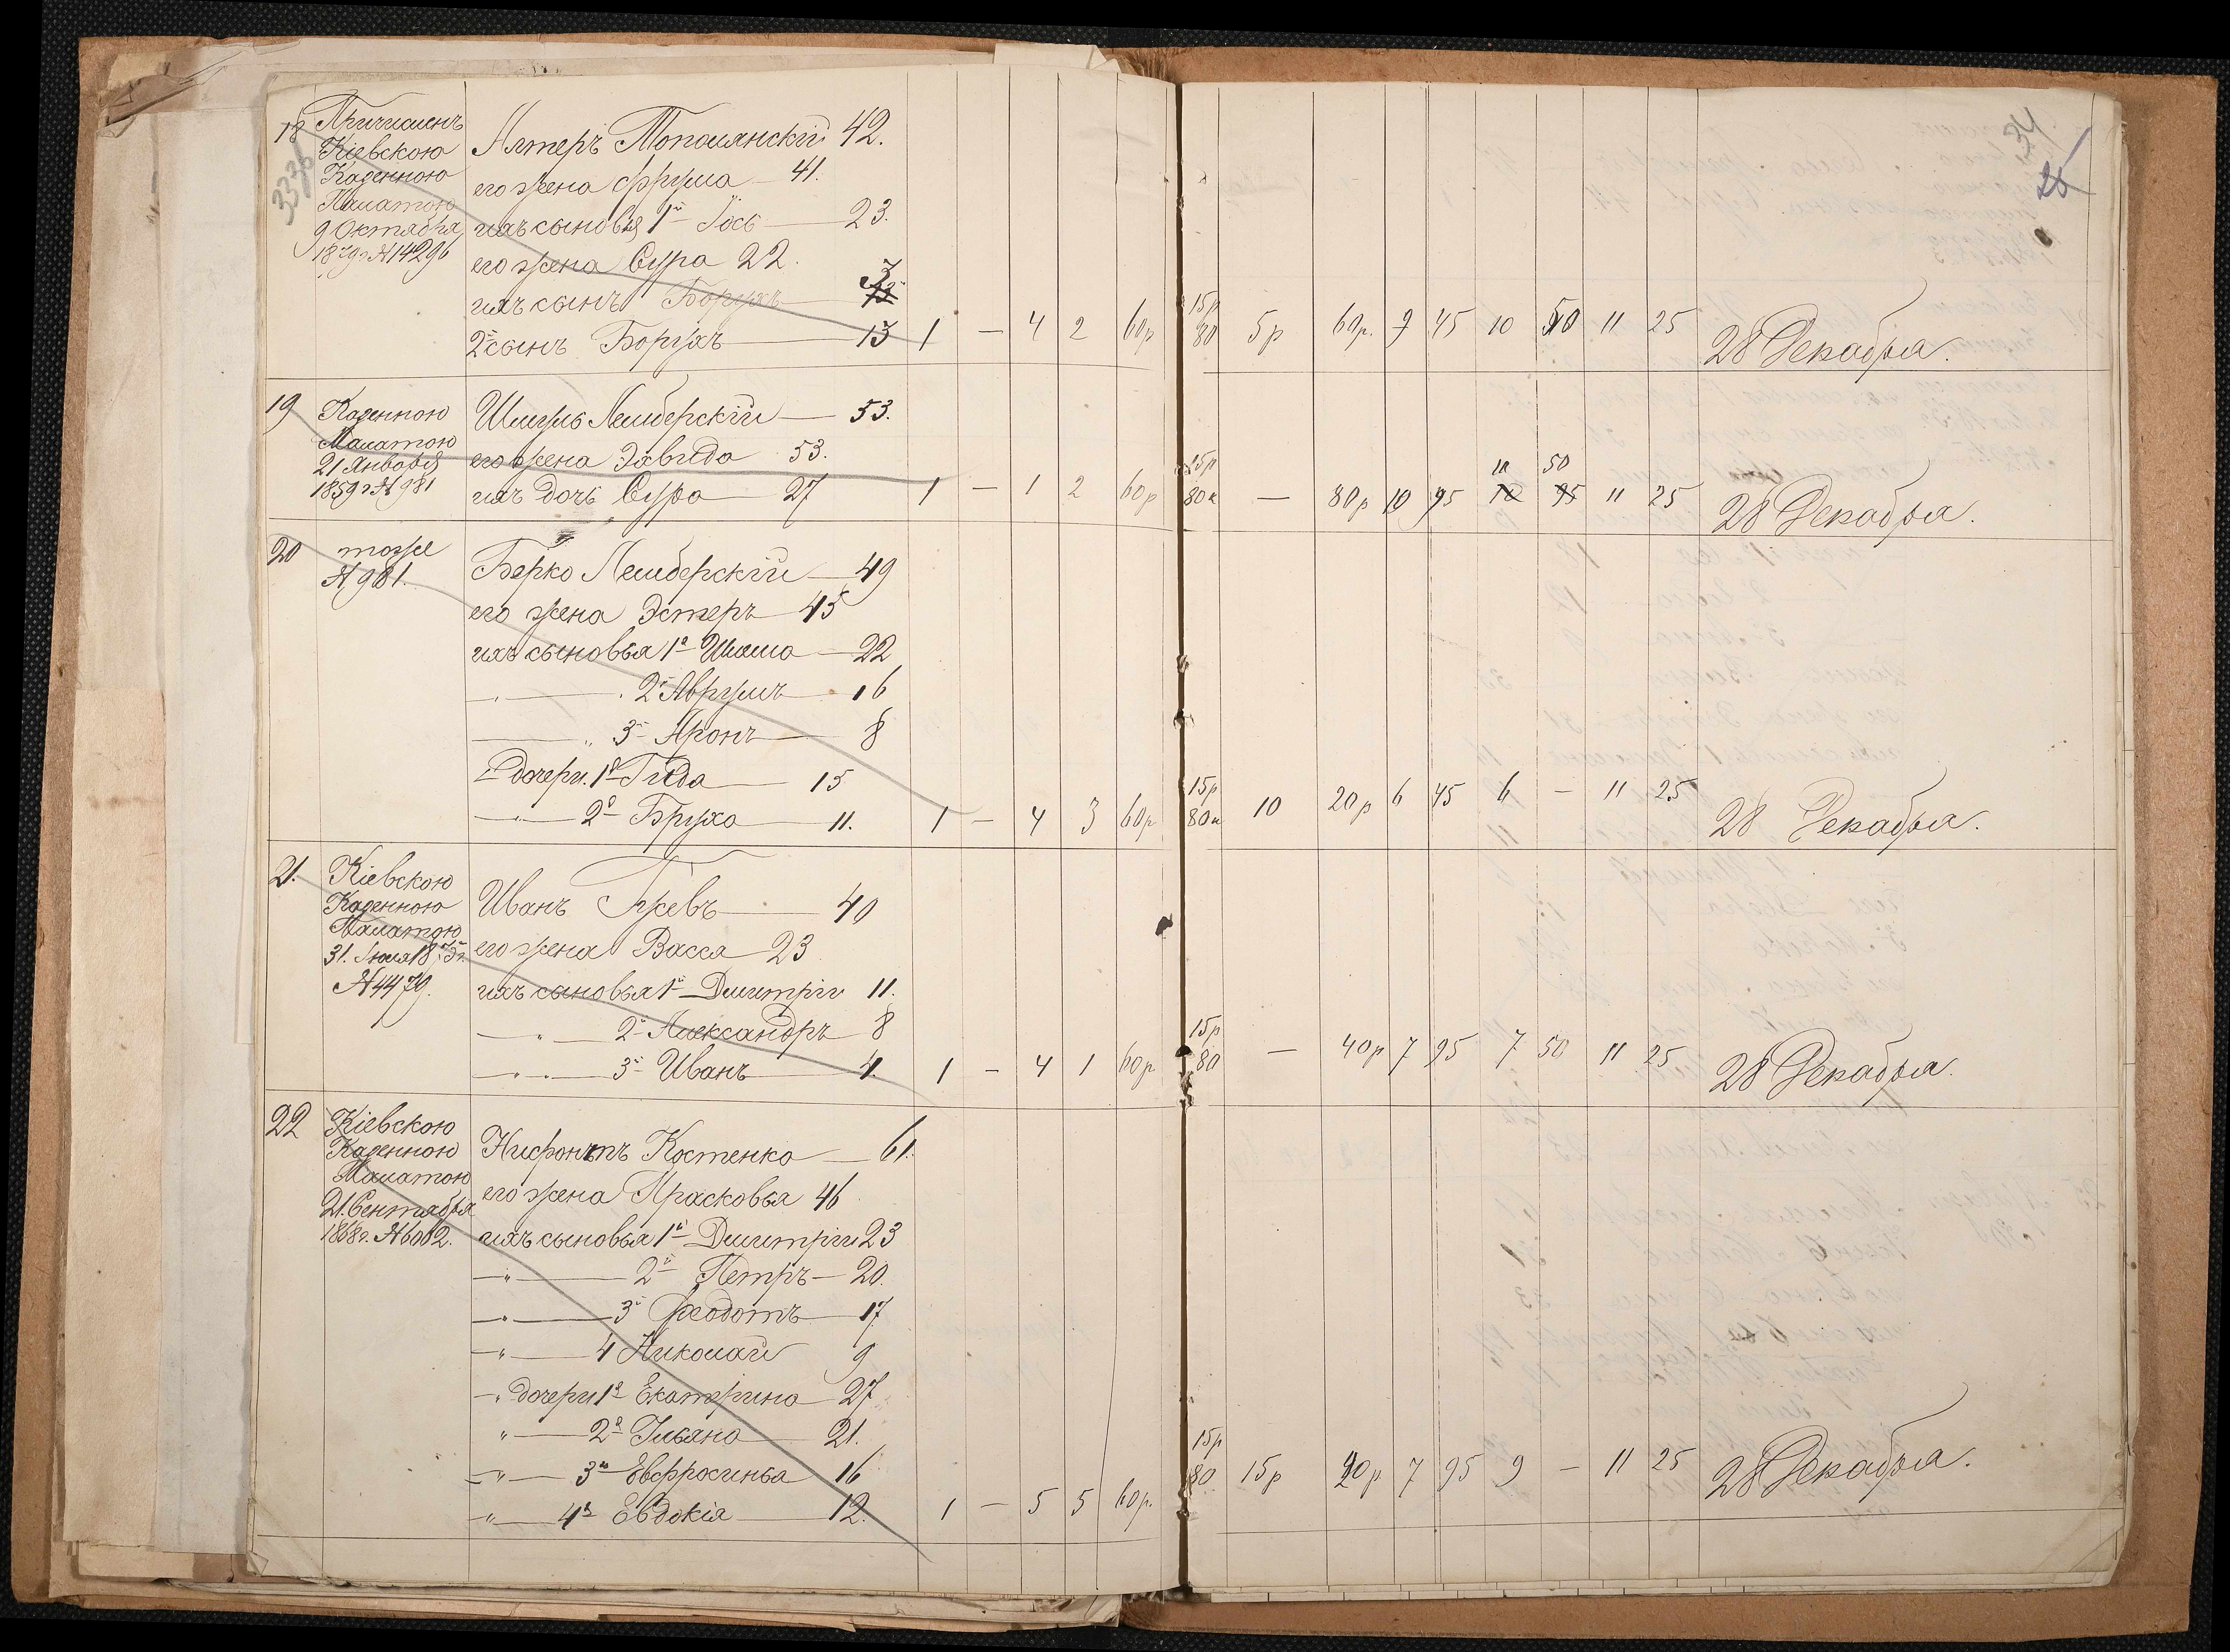 34
26
18 Причисленъ
Кіевскою
Казенною
Палатою
9 Октября
1879 г № 14296
Алтеръ Тополянскій 42.
его жена Фрума — 41.
ихъ сыновья 1й Іось — 23.
его жена Сура 22.
ихъ сынъ Борухъ — 3
2й сынъ Борухъ — 13 1 — 4 2 60р 15р 80 5р 60р. 9 45 10 50 11 25 28 Декабря.
19 Казенною
Палатою
21 Января
1859 г № 981
Шмуль Лемберскій — 53.
его жена Эльвида 53.
ихъ дочь Сура — 27 1 — 1 2 60р 15р 80к — 80р 10 95 10 50 11 25 28 Декабря.
20 тоже
№ 981.
Берко Лемберскій — 49
его жена Эстеръ — 45
ихъ сыновья 1й Шлема — 22
— " — 2й Аврумъ — 16
— " 3й Аронъ — 8
— дочери. 1я Гитда — 15
— " — 2я Бруха — 11. 1 — 4 3 60р 15р 80к 10 20р 6 45 6 — 11 25 28 Декабря.
21. Кіевскою
Казенною
Палатою
31. Іюля 1875 г.
№ 4479.
Иванъ Гуевъ — 40
его жена Васса — 23
ихъ сыновья 1й Дмитрій 11.
— " — 2й Александръ — 8
— " — 3й Иванъ — 4. 1 — 4 1 60р 15р 80 — 40р 7 95 7 50 11 25 28 Декабря.
22 Кіевскою
Казенною
Палатою
21. Сентября
1868 г. № 6002.
Нифонтъ Костенко — 61.
его жена Прасковья 46
ихъ сыновья 1й Дмитрій 23
— " — 2й Петръ — 20.
— " — 3й Феодотъ — 17
— " — 4 Николай 9
— " дочери 1я Екатерина — 27
" — 2я Ульяна — 21.
— " — 3я Евфросинья 16
— " — 4я Евдокія — 12. 1 — 5 5 60р. 15р 80 15р 20р 7 95 9 — 11 25 28 Декабря.